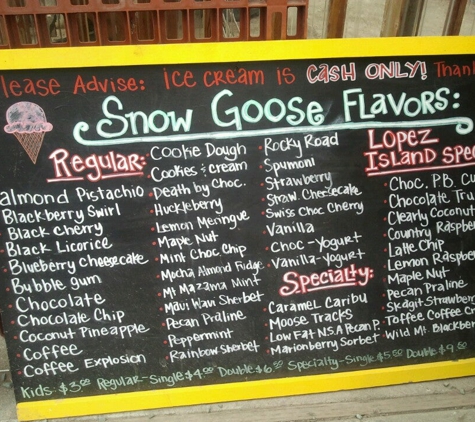 Please Advise: ICE CREAM IS CASH ONLY! Thank
Snow Goose FLAVORS:
Regular:
almond Pistachio
Blackberry Swirl
Black Cherry
Black Licorice
Blueberry Cheesecake
Bubble gum
Chocolate
Chocolate Chip
Coconut Pineapple
Coffee
Coffee Explosion
Cookie Dough
Cookies & cream
Death by Choc.
Huckleberry
Lemon Meringue
Maple Nut
Mint Choc Chip
Mocha Almond Fudge
Mt Mazama Mint
Maui Wave Sherbet
Pecan Praline
Peppermint
Rainbow Sherbet
Rocky Road
Spumoni
Strawberry
Straw Cheesecake
Swiss Choc Cherry
Vanilla
Choc-Yogurt
Vanilla-Yogurt
Specialty:
Caramel Caribu
Moose Tracks
Low Fat N.S.A Pecan P.
Marionberry Sorbet
Lopez
Island Spe
Choc. P.B. Cu
Chocolate Tru
Clearly Coconut
Country Raspb
Latte Chip
Lemon Raspber
Maple Nut
Pecan Praline
Skagit Strawbe
Toffee Coffee Cr
Wild Mt. Blackb
Kids: $3.00 Regular-Single $4.00 Double $6.00 Specialty-Single $5.00 Double $9.00